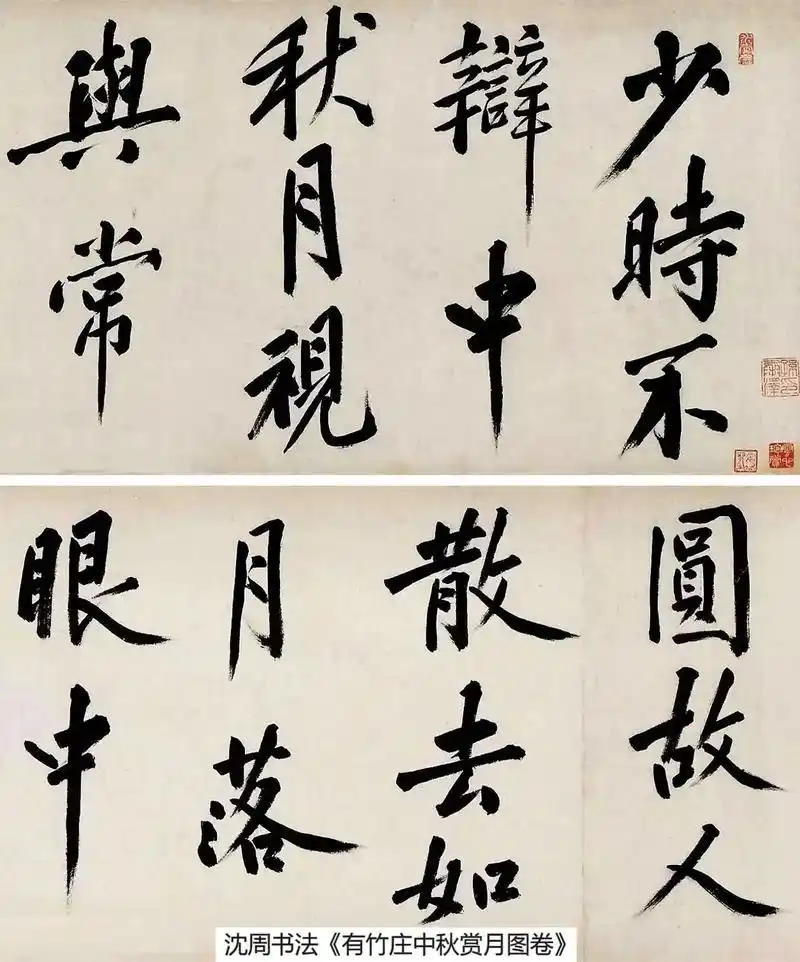 少時不
辯中
秋月視
與常
圓故人
散去如
月落
眼中
沈周书法《有竹庄中秋赏月图卷》